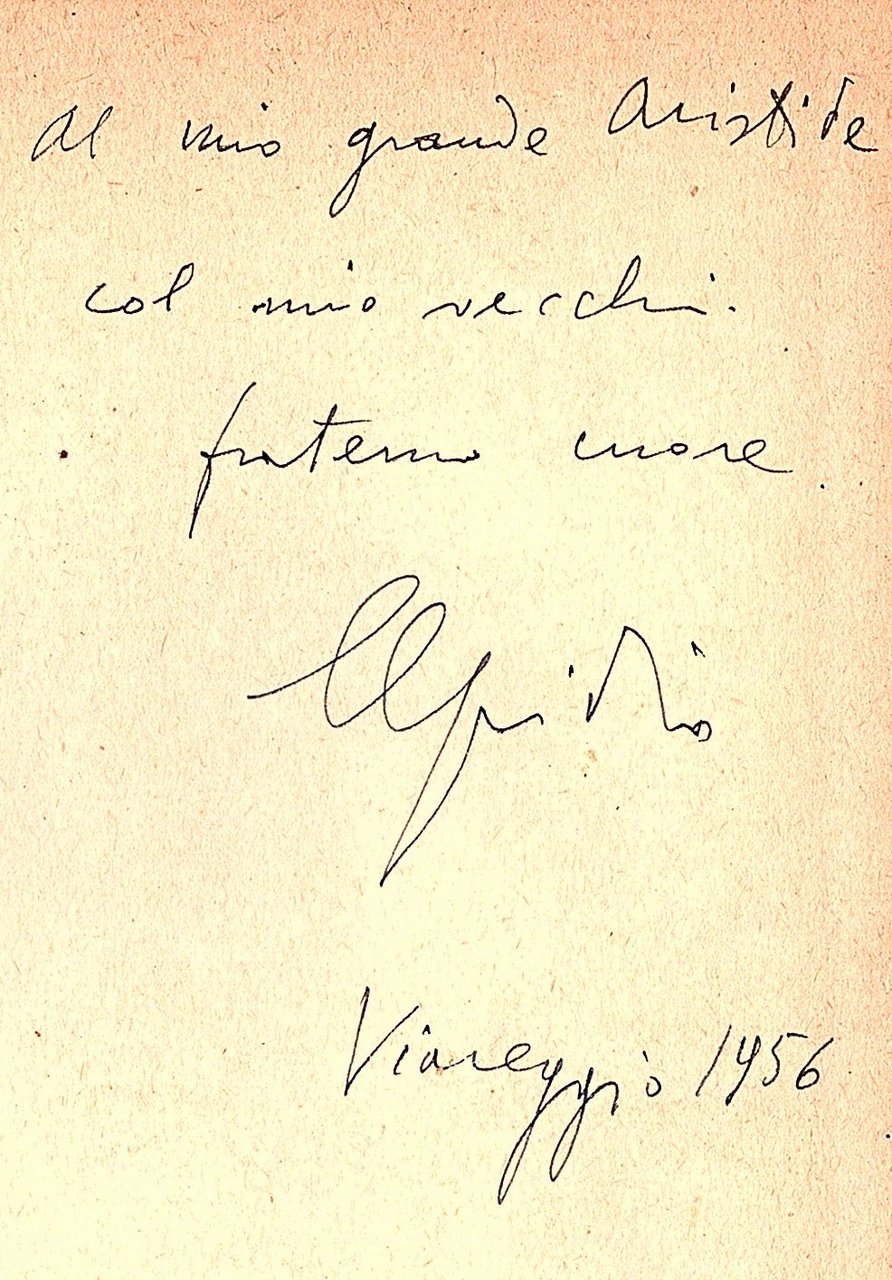 Al mio grande Aristide
col mio vecchio
fraterno cuore
Elpidio
Viareggio 1956